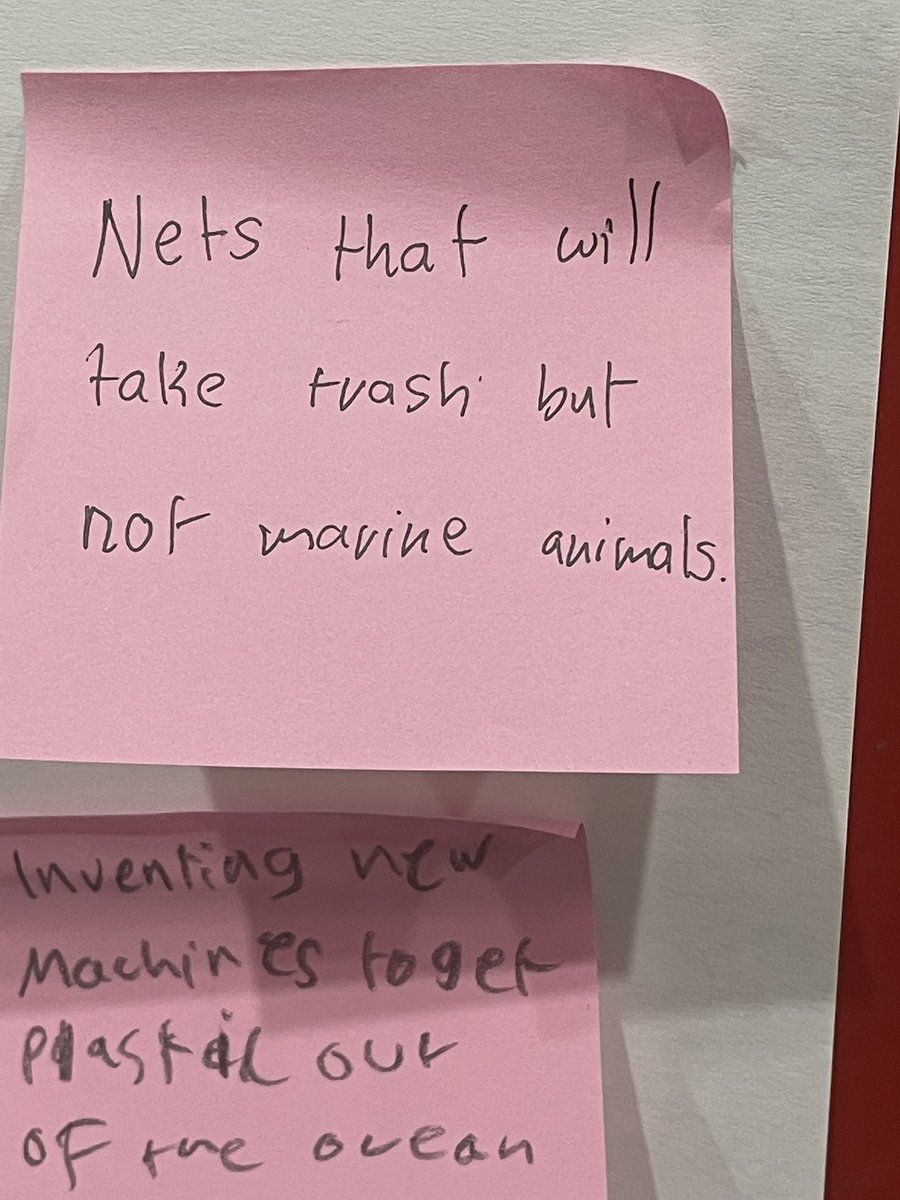 Nets that will
take trash but
not marine animals.
Inventing new
Machines to get
Plastic out
of the ocean